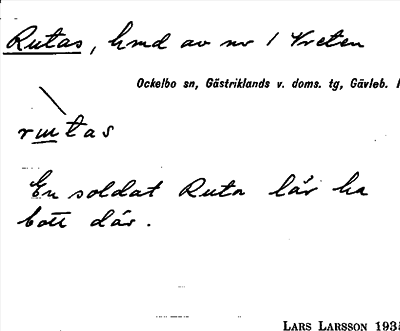 Rutas, hmd av nr 1 Vreten
Ockelbo sn, Gästriklands v. doms. tg, Gävleb. l
En soldat Ruta lär ha
bott där.
LARS LARSSON 1935